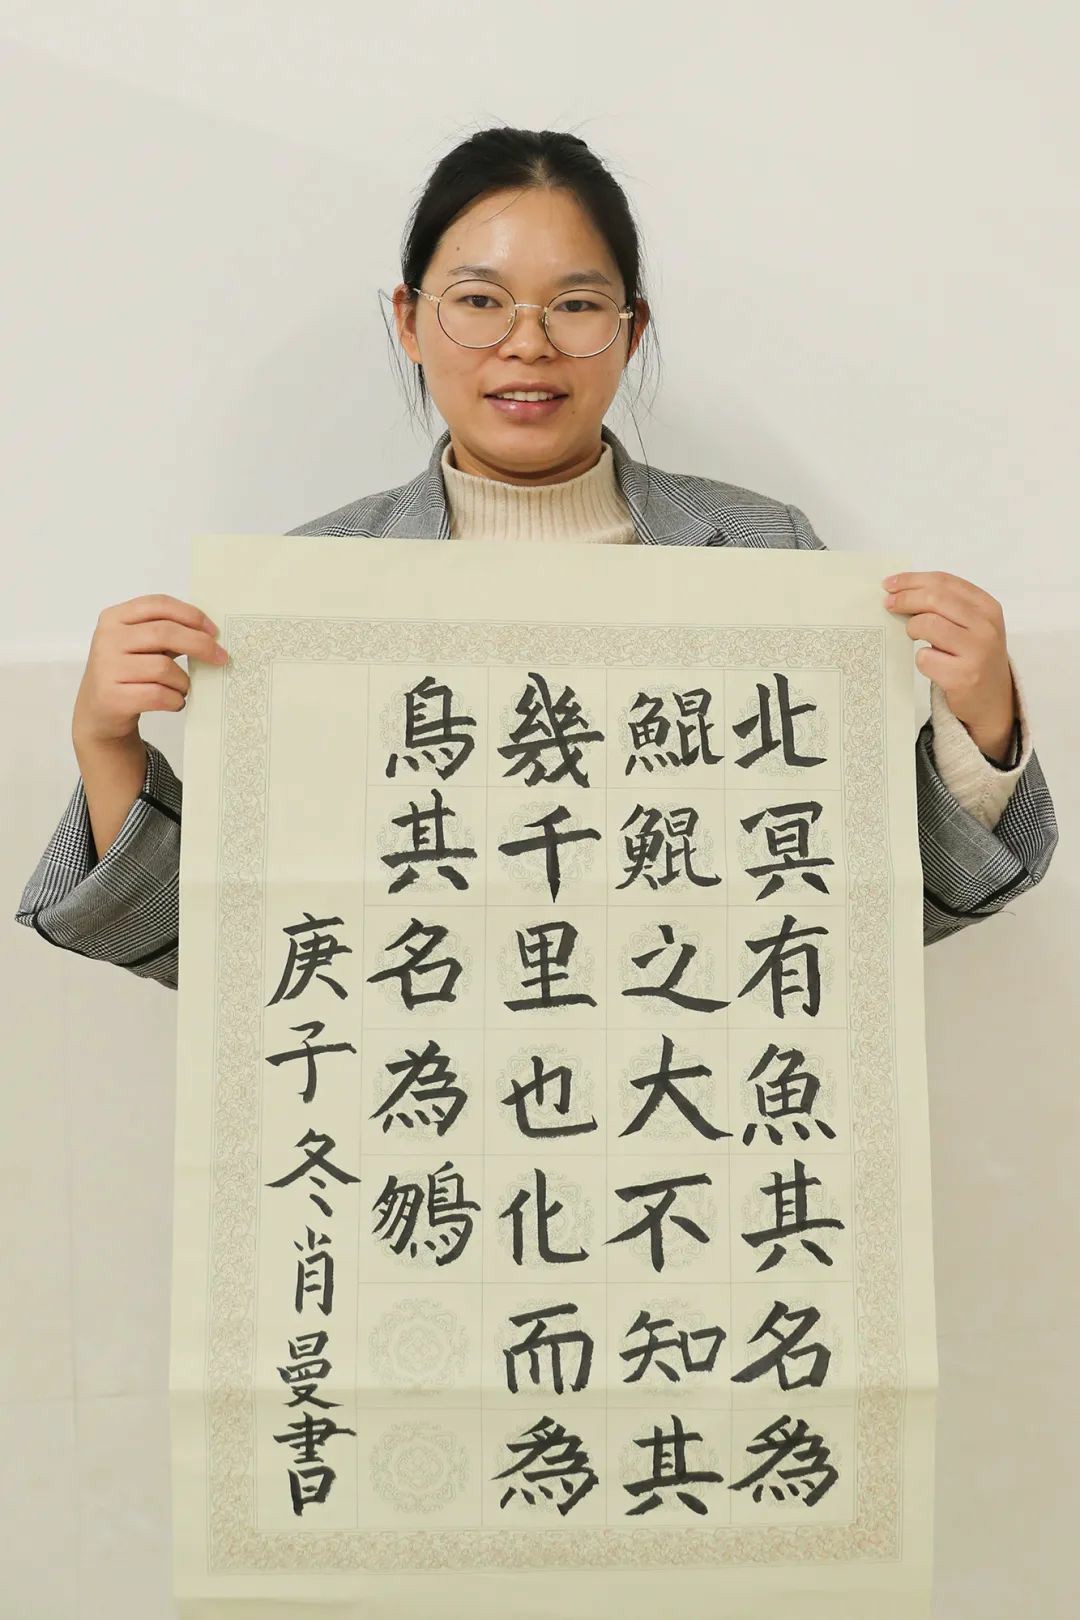 北冥有魚其名為
鯤鯤之大不知其
幾千里也化而為
鳥其名為鵷
庚子冬肖曼書